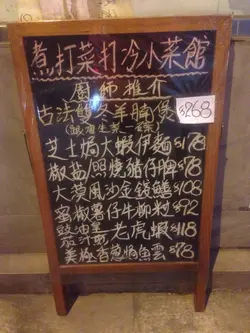 煮打菜打冷小菜館
廚師推介
古法雙冬羊腩煲 $268
芝士焗大蝦伊麵 $178
椒鹽/照燒豬仔脾 $78
大漠風沙金錢鱔 $108
蜜椒薯仔牛柳粒 $92
豉油皇 老虎蝦 $118
美極香葱焗魚雲 $78